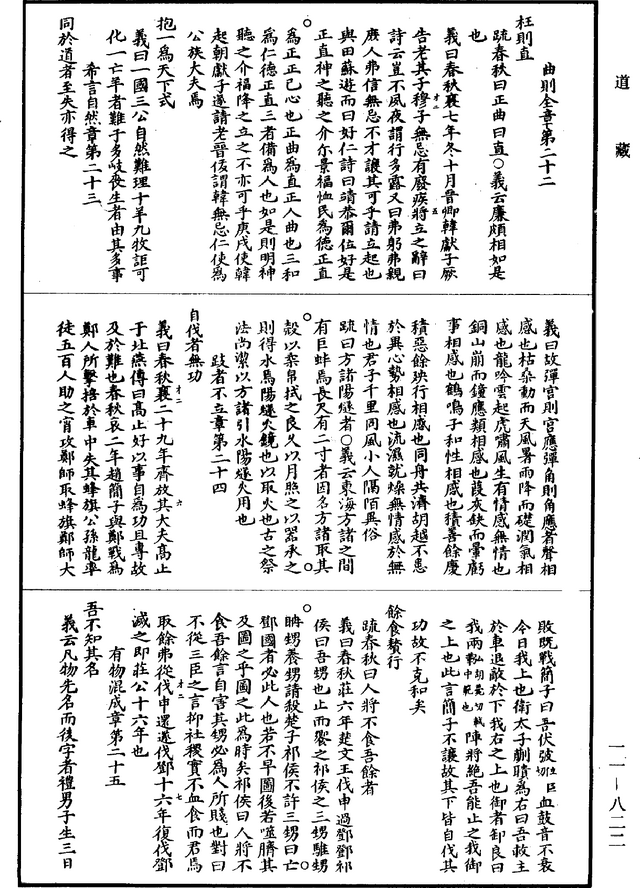 道藏
曲則全章第二十二
枉則直
疏春秋曰正曲曰直○義云廉頗相如是
也
義曰春秋襄七年冬十月晉卿韓獻子厥
告老其子穆子無忌有廢疾將立之辭曰
詩云豈不夙夜謂行多露又曰弗躬弗親
庶人弗信無忌不才讓其可乎請立起也
與田蘇遊而曰好仁詩曰靖恭爾位好是
正直神之聽之介尒景福恤民為德正直
為正正己心也正曲為直正人曲也三和
為仁德正直三者備為人也如是則明神
聽之介福降之立之不亦可乎庚戌使韓
起朝獻子遂請老晉侯謂韓無忌仁使為
公族大夫焉
抱一為天下式
義曰一國三公自然難理十羊九牧詎可
化一亡羊者難于多岐喪生者由其多事
希言自然章第二十三
同於道者至失亦得之
義曰故彈宮則宮應彈角則角應者聲相
感也枯桑動而天風暑雨降而礎潤氣相
感也龍吟雲起虎嘯風生有情感無情也
銅山崩而鐘應類相感也葭灰缺而暈虧
事相感也鶴鳴子和性相感也積善餘慶
積惡餘殃行相感也同舟共濟胡越不患
於異心勢相感也流濕就燥無情感於無
情也君子千里同風小人隔陌異俗
疏曰方諸陽燧者○義云東海方諸之間
有巨蚌焉長尺有二寸者因名方諸取其
殼以柔帛拭之良久以月照之以器承之
則得水焉陽燧火鏡也以取火也古之祭
法尚潔以方諸引水陽燧火用也
跂者不立章第二十四
自伐者無功
義曰春秋襄二十九年齊放其大夫高止
于北燕傳曰高止好以事自為功且專故
及於難也春秋哀二年趙簡子與鄭戰為
鄭人所擊踣於車中失其蜂旗公孫龍率
徒五百人助之宵攻鄭師取蜂旗鄭師大
敗既戰簡子曰吾伏弢嘔血鼓音不衰
今日我上也衛太子蒯聵為右曰吾救主
於車退敵於下我右之上也御者郵良曰
我兩靷將絕吾能止之我御
之上也此言簡子不讓故其下皆自伐其
功故不克和矣
餘食贅行
疏春秋曰人將不食吾餘者
義曰春秋莊六年楚文王伐申過鄧鄧祁
侯曰吾甥也止而饗之祁侯之三甥騅甥
聃甥養甥請殺楚子祁侯不許三甥曰亡
鄧國者必此人也若不早圖後若噬臍其
及圖之乎圖之此為時矣祁侯曰人將不
食吾餘言自害其甥必為人所賤也對曰
不從三臣之言抑社稷實不血食而君焉
取餘弗從伐申還遂伐鄧十六年復伐鄧
滅之即莊公十六年也
有物混成章第二十五
吾不知其名
義云凡物先名而後字者禮男子生三日
一一—八二二